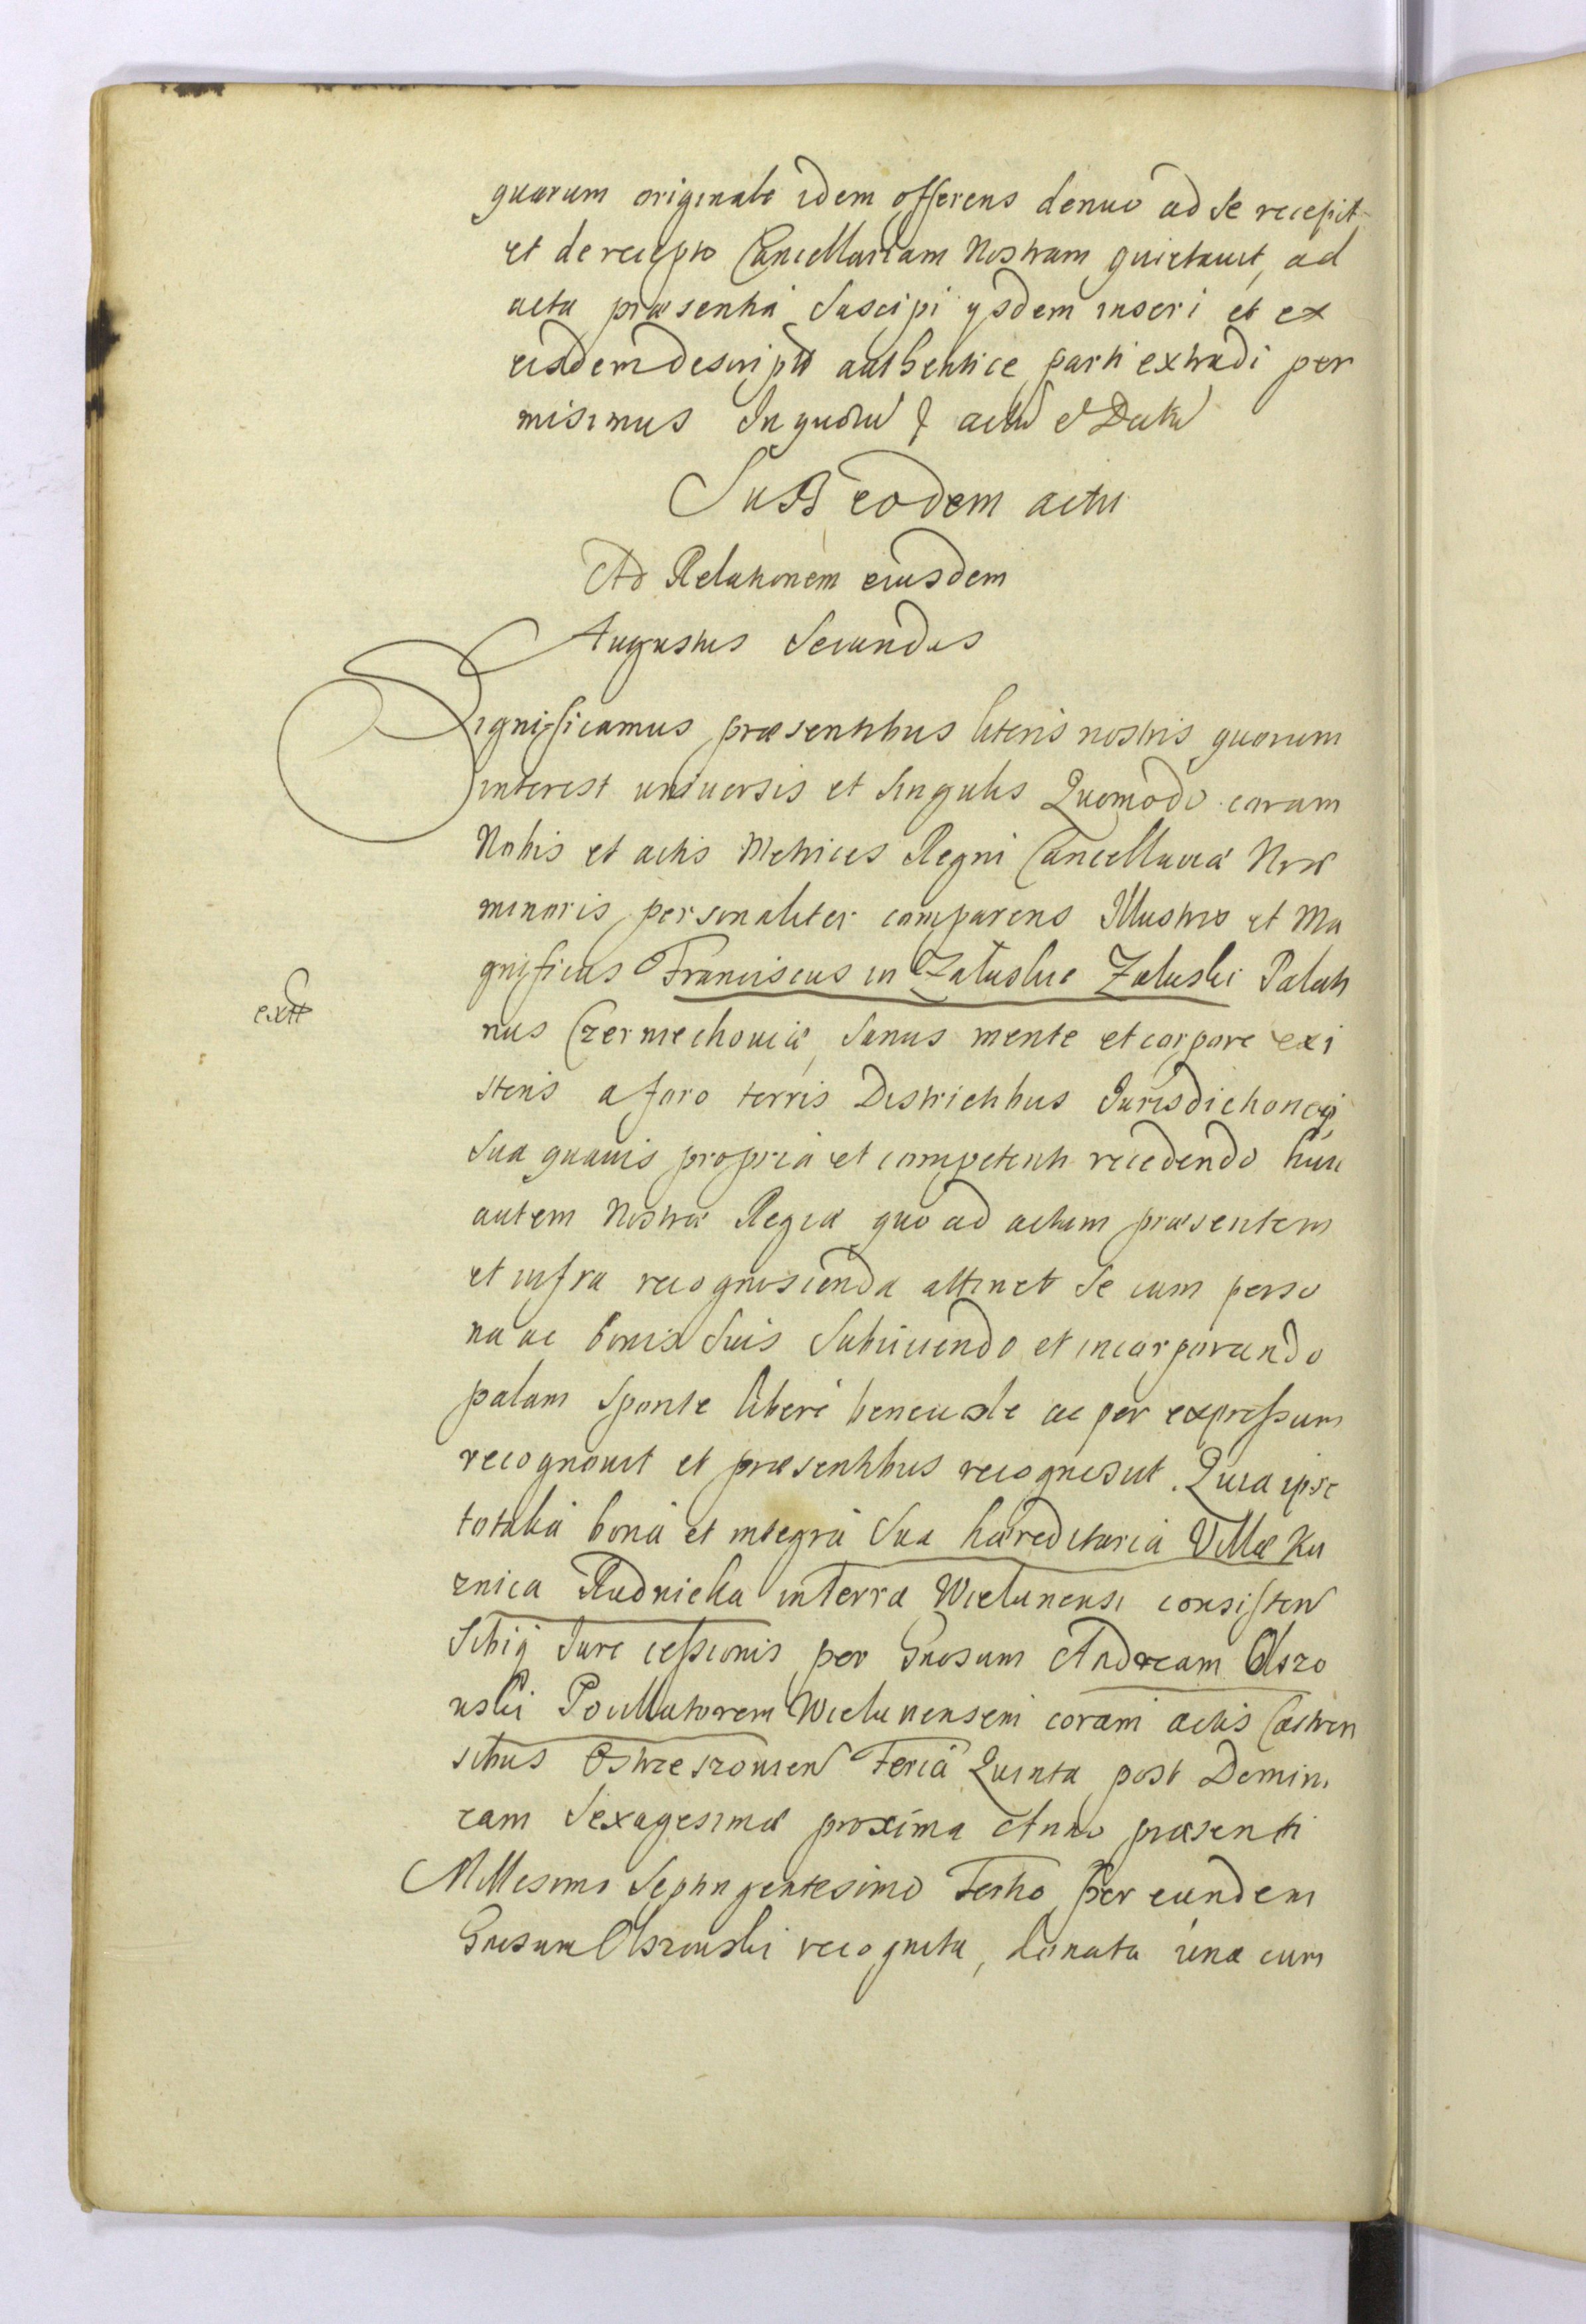 quarum originale idem offerens denuo ad se recepit
et de recepto Cancellariam Nostram quietauit, ad
acta præsentia suscipi ysdem inseri et ex
eisdem descriptū authentice parti extradi per
misimus In quorū & actū & Datū
Sub eodem actu
Ad Relationem eiusdem
Augustus Secundus
Significamus præsentibus literis nostris quorum
interest uniuersis et singulis Quomodo coram
Nobis et actis Metrices Regni Cancellariæ Nræ
minoris personaliter comparens Illustris et Ma
gnificus Franciscus in Załuskie Załuski Palati
extt
nus Czerniechouiæ, sanus mente et corpore exi
stens a foro terris Districtibus Iurisdictioneq
sua quauis propria et competenti recedendo huic
autem Nostræ Regiæ quo ad actum præsentem
et infra recognoscenda attinet se cum perso
na ac bonis suis subijciendo et incorporando
palam sponte libere beneuole ac per expressum
recognouit et præsentibus recognoscit. Quia ipse
totalia bona et integra sua hæreditaria Villæ Ku
znica Rudnicka in Terra Wielunensi consisten
sibiq Iure cessionis per Gnosum Andream Olszo
wski Pocillatorem Wielunensem coram actis Castren
sibus Ostrzeszouien Feria Quinta post Domini
cam Sexagesimæ proxima Anno præsenti
Millesimo Septingentesimo Tertio per eundem
Gnosum Olszouski recognita, donata una cum